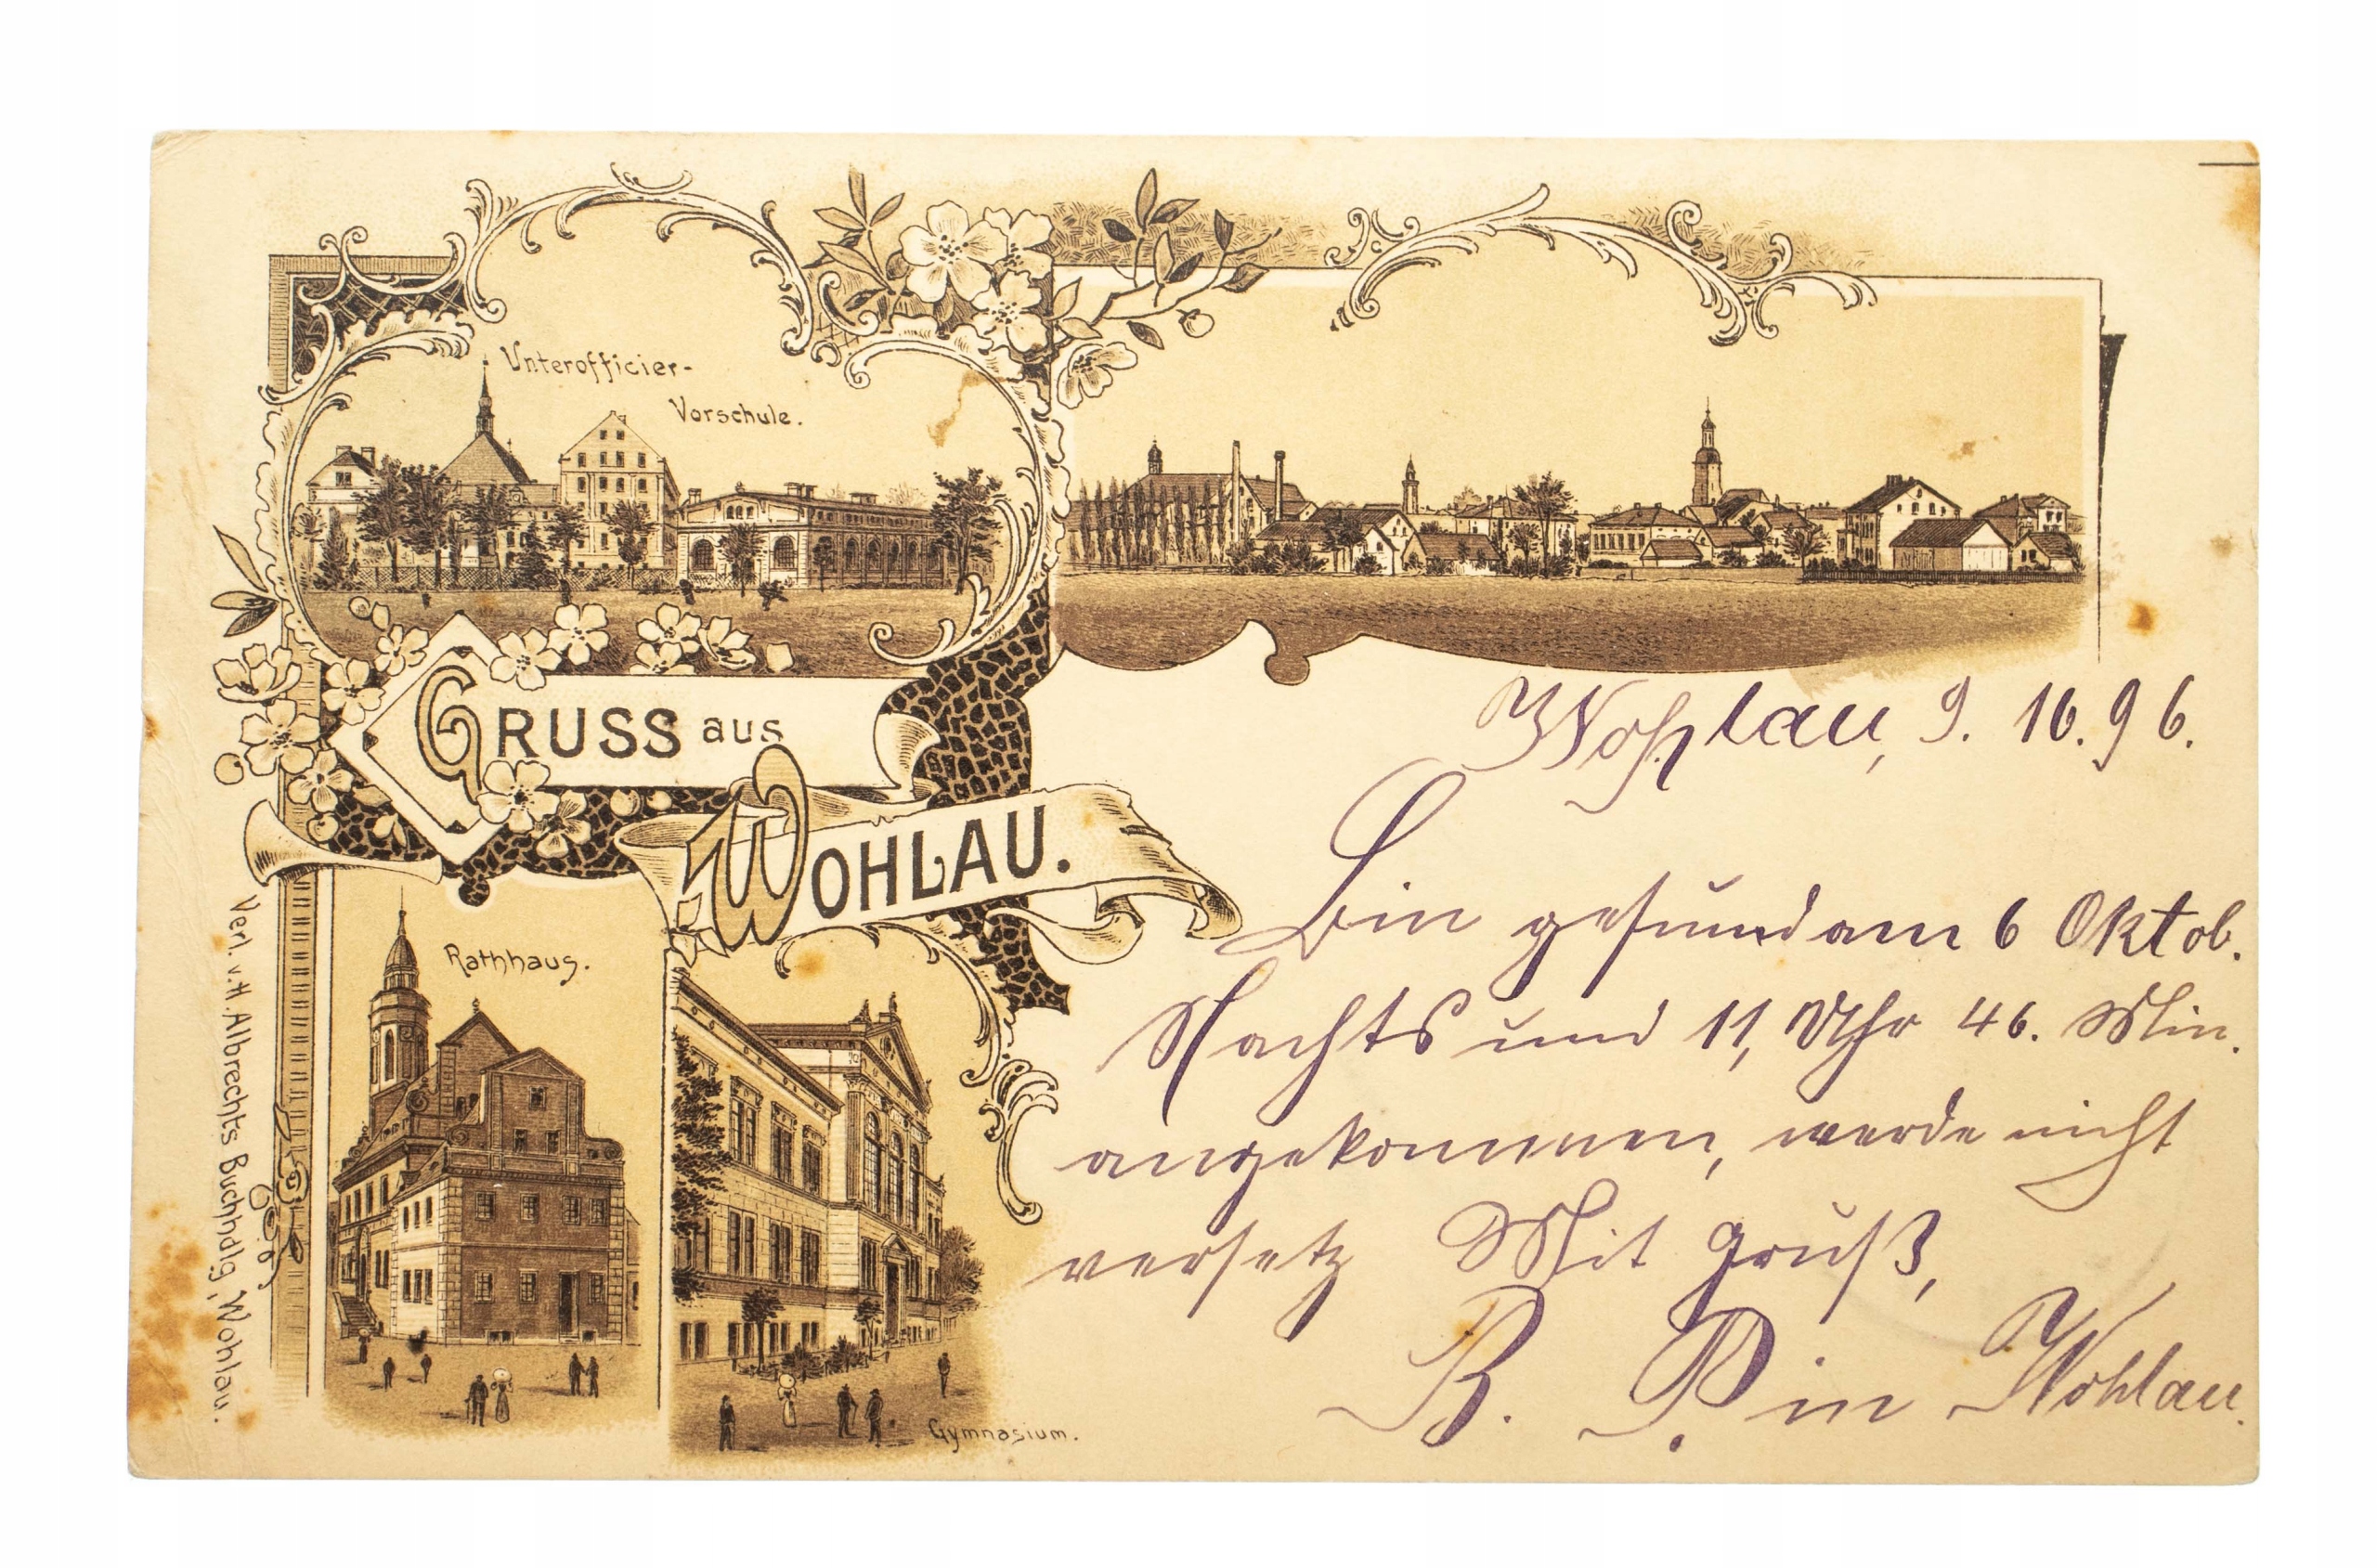 Unterofficier-
Vorschule.
GRUSS aus
WOHLAU.
Rathhaus.
Gymnasium.
Verl. v. H. Albrechts Buchhdlg, Wohlau.
Wohlau, 9. 10. 96.
Bin gesund am 6 Oktob.
Nachts um 11, Uhr 46. Min.
angekommen, werde nicht
versetz Mit Gruß,
B. P. in Wohlau.